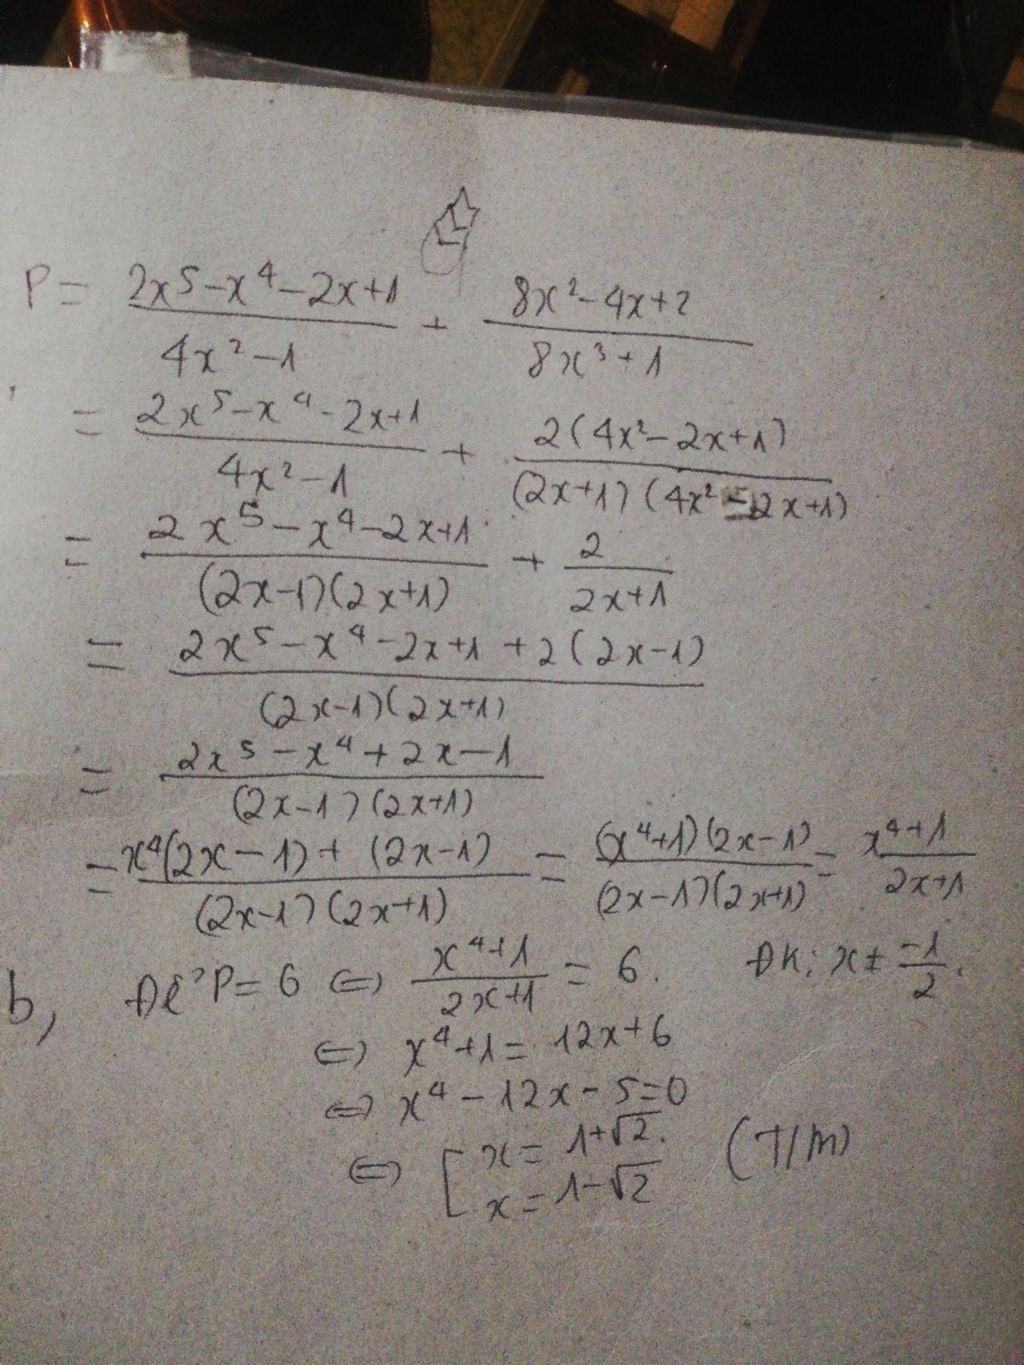 P = (2x⁵ - x⁴ - 2x + 1)/(4x² - 1) + (8x² - 4x + 2)/(8x³ + 1)
= (2x⁵ - x⁴ - 2x + 1)/(4x² - 1) + 2(4x² - 2x + 1)/((2x + 1)(4x² - 2x + 1))
= (2x⁵ - x⁴ - 2x + 1)/((2x - 1)(2x + 1)) + 2/(2x + 1)
= (2x⁵ - x⁴ - 2x + 1 + 2(2x - 1))/((2x - 1)(2x + 1))
= (2x⁵ - x⁴ + 2x - 1)/((2x - 1)(2x + 1))
= (x⁴(2x - 1) + (2x - 1))/((2x - 1)(2x + 1)) = ((x⁴ + 1)(2x - 1))/((2x - 1)(2x + 1)) = (x⁴ + 1)/(2x + 1)
b, Để P = 6 ⇔ (x⁴ + 1)/(2x + 1) = 6. ĐK: x ≠ -1/2.
⇔ x⁴ + 1 = 12x + 6
⇔ x⁴ - 12x - 5 = 0
⇔ [ x = 1 + √2. (T/m)
x = 1 - √2